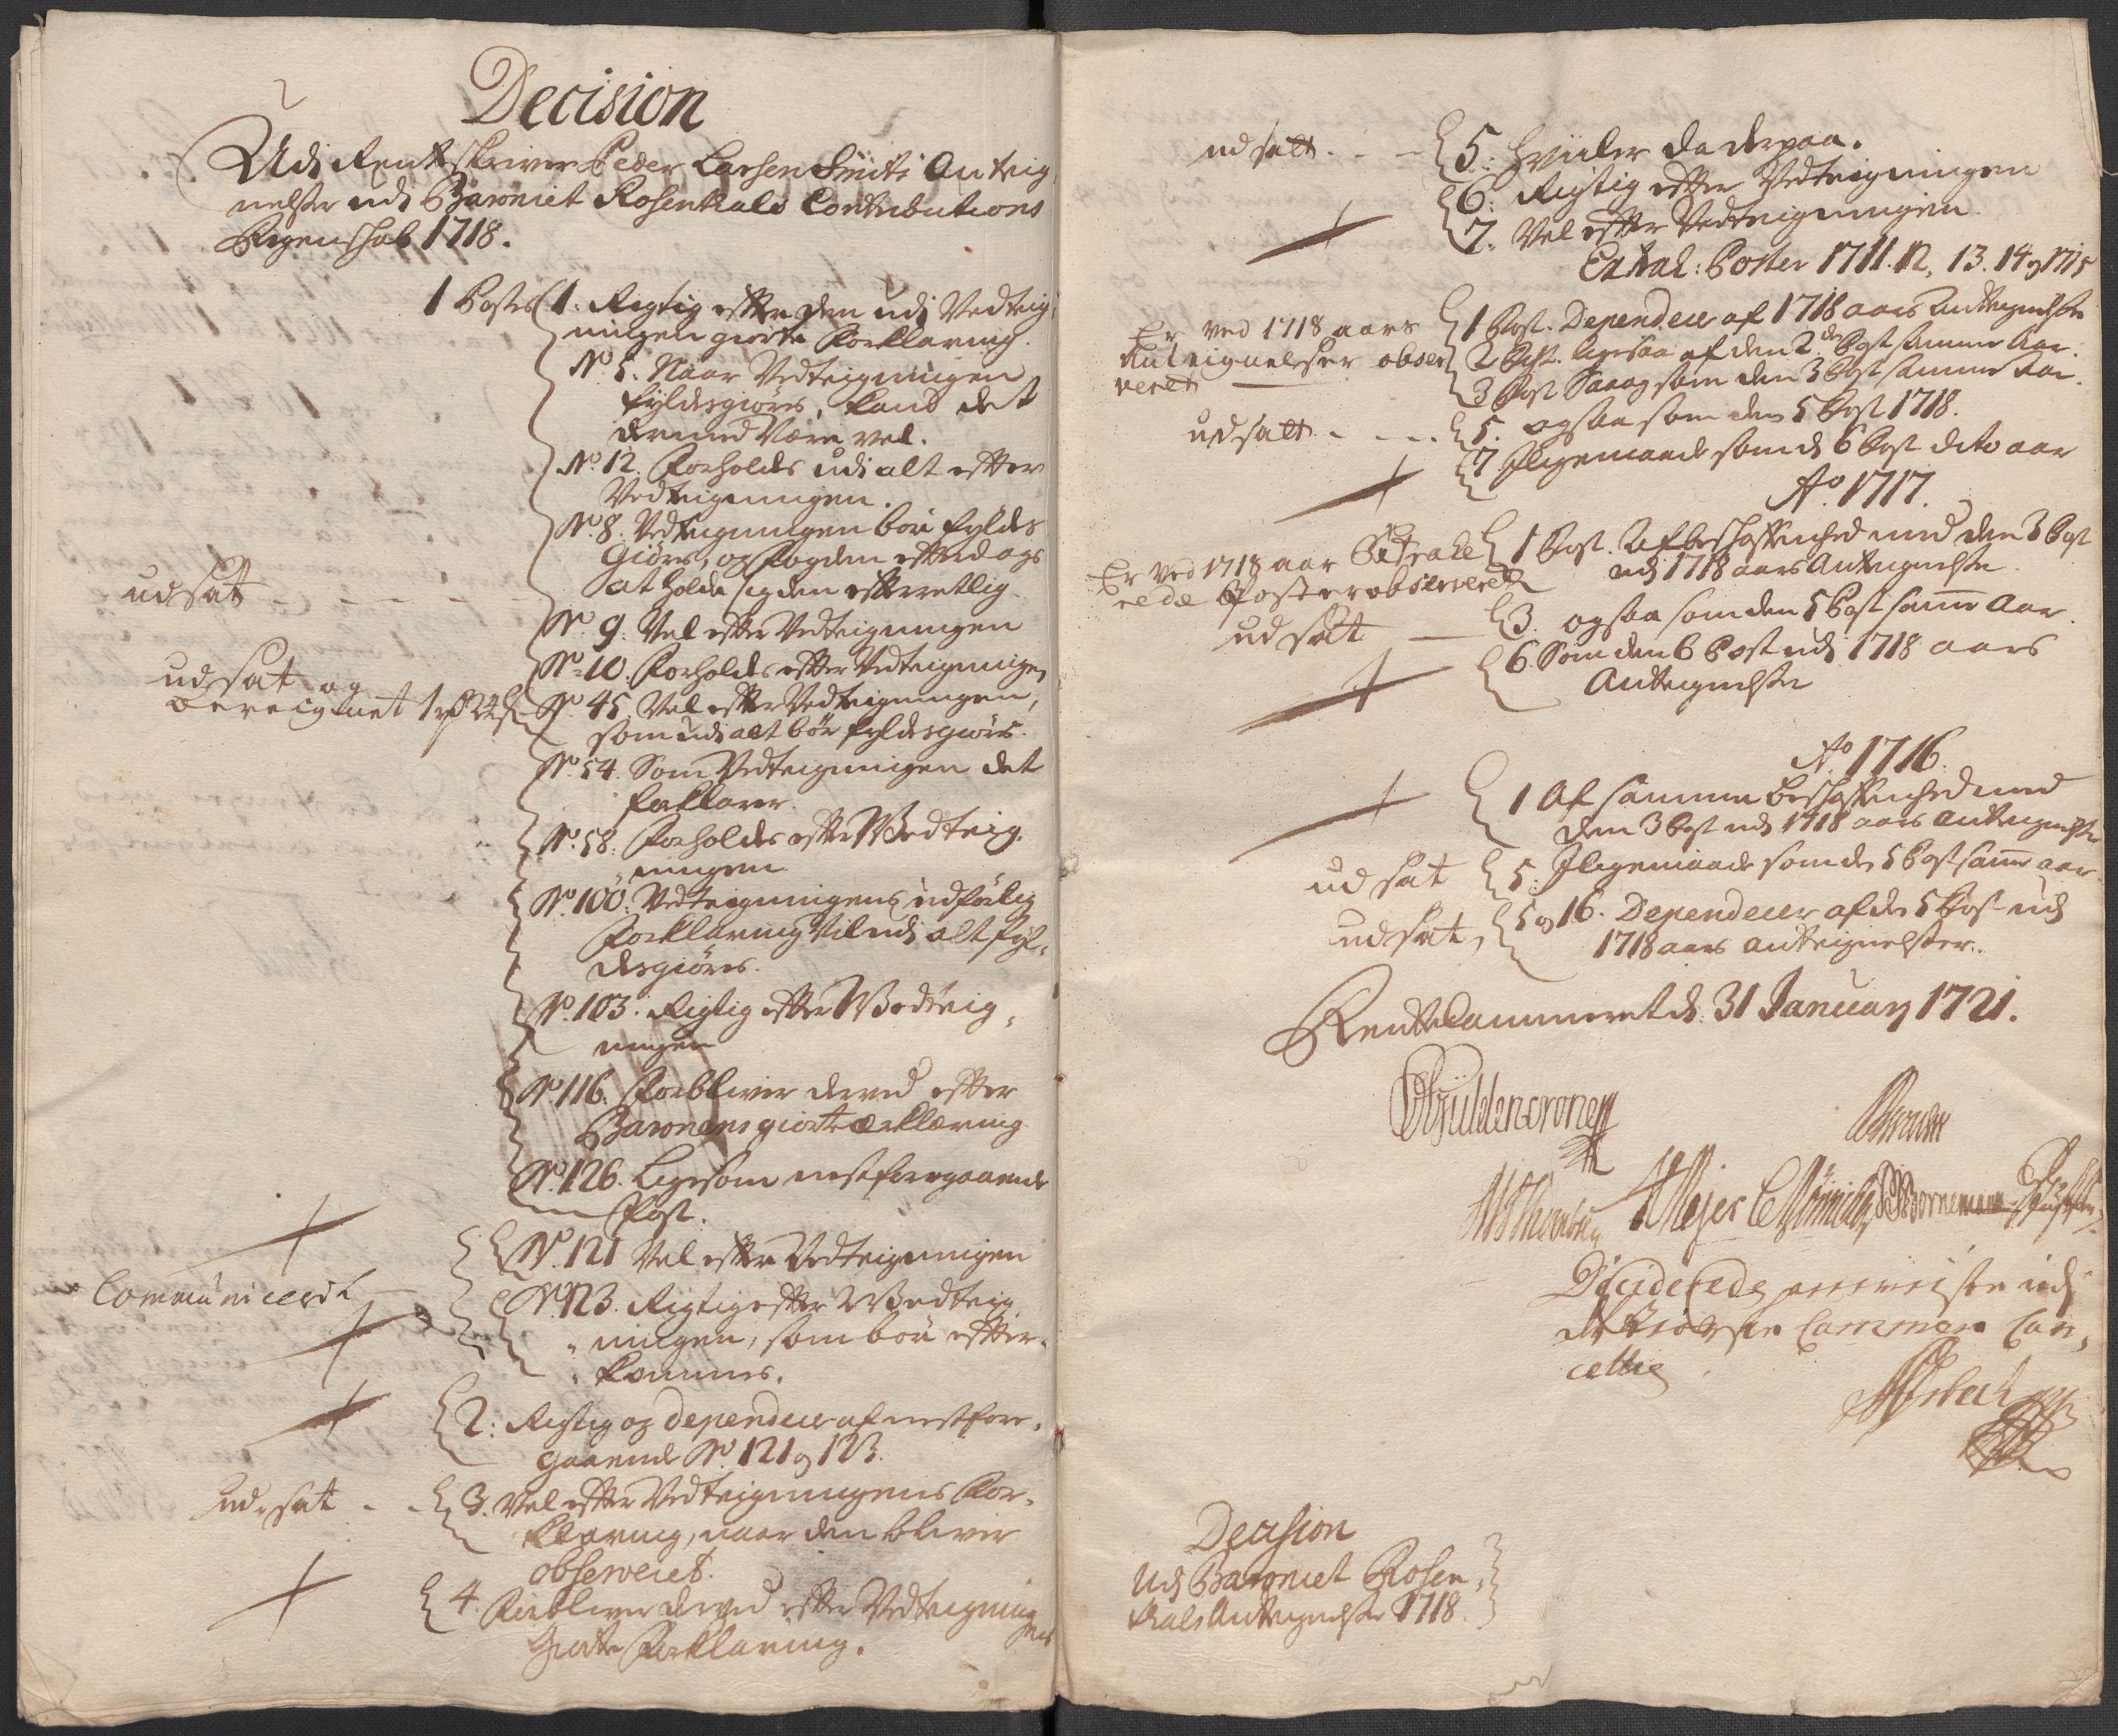 Decision
Udj Rentskriver Peder Larsen Smits Anteig
nelser udj Baroniet Rosenthals Contributions
Regenshab 1718.
1 Posts 1. Rigtig efter den udj Vedteig
ningen giorte Forklaring.
No 5. Naar Vedteigningen
fyldesgiøres, kand det
dermed være vel.
No 12. Forholdes udi alt efter
Vedteigningen.
No 8. Vedteigningen bør fyldes
Giøres, og Fogden
udsat
at holde sig den efterretlig
No 9. Vel efter Vedteigningen
No 10. Forholdes efter Vedteigningen
udsat og
bereignet 1 rd 22 s
No 45 Vel efter Vedteigningen,
som udi alt bør fyldesgiøris.
No 54. Som Vedteigningen det
forklarer.
No 58. Forholdes efter Vedteig,
ningen
No 100. Vedteigningens udførlig
Forklaring vil udj alt fyl,
desgiøres.
No 103. Rigtig efter Vedteig,
ningen
No 116. Forbliver derved efter
Baronens giorte Erklæring
No 126. Ligesom nestforegaaende
Post.
No 121 Vel efter Vedteigningen
Communicerit
No 123. Rigtig efter Vedteig,
ningen, som bør efter,
kommes.
2. Rigtig og dependerer af nestfore,
gaaende No 121 og 123.
udsat 3. Vel efter Vedteigningens For,
klaring, naar den bliver
observeret.
4 Forbliver derved efter Vedteigningens
Giorte Forklaring.
udsatt 5. Hviler da derpaa.
6. Rigtig efter Vedteigningen
7. Vel efter Vedteigningen.
Extrah: Poster 1711. 12, 13. 14 og 1715
Er ved 1718 aars
Anteignelser obser
veret
1 Post. Dependerer af 1718 aars Anteignelser
2 Post. ligesaa af den 2den Post samme Aar.
3 Post Saasom den 3 Post samme Aar.
udsatt 5. ogsaa som den 5 Post 1718.
7 Iligemaade som d 6 Post dito aar
Ao 1717.
Er ved 1718 aar
rede Poster observeret
1 Post. Af beschaffenhed med den 3 Post
udj 1718 aars Anteignelser.
udsat 3. ogsaa som den 5 Post samme Aar.
6 Som den 6 Post udj 1718 aars
Anteignelser
Ao 1716.
1 Af samme beschaffenhed med
den 3 Post udj 1718 aars Anteignelser
udsat 5. Iligemaade som de 5 Post samme aar.
udsat, 5 og 16. Dependerer af de 5 Post udj
1718 aars anteignelser.
Rentekammeret d. 31 January 1721.
Gyldencrone
Meyer
Bornemann
Deciderede
Cammer Can,
cellie
Decision
Udj Baroniet Rosen,
thals Anteignelser 1718.